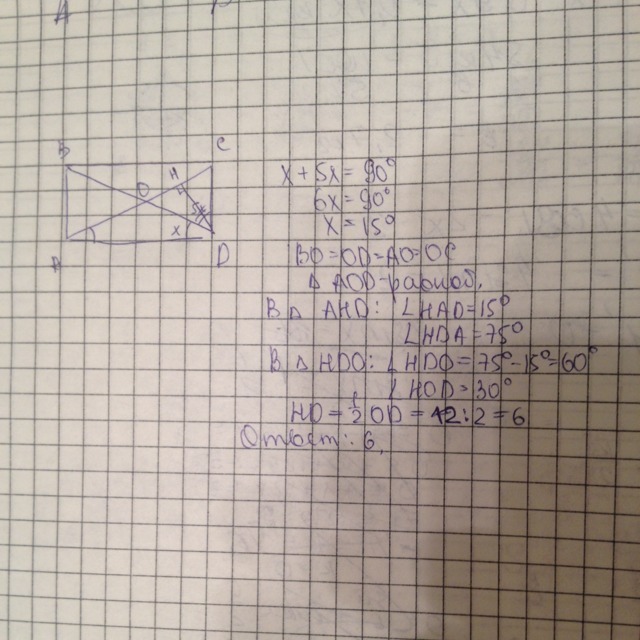 A
B
C
H
O
5x
x
A
D
x + 5x = 90°
6x = 90°
x = 15°
BO=OD=AO=OC
△ AOD=равноб.
В △ AHD: ∠HAD=15°
∠HDA=75°
В △ HDO: ∠HDO=75°-15°=60°
∠HOD=30°
HD = 1/2 OD = 12:2 = 6
Ответ: 6,